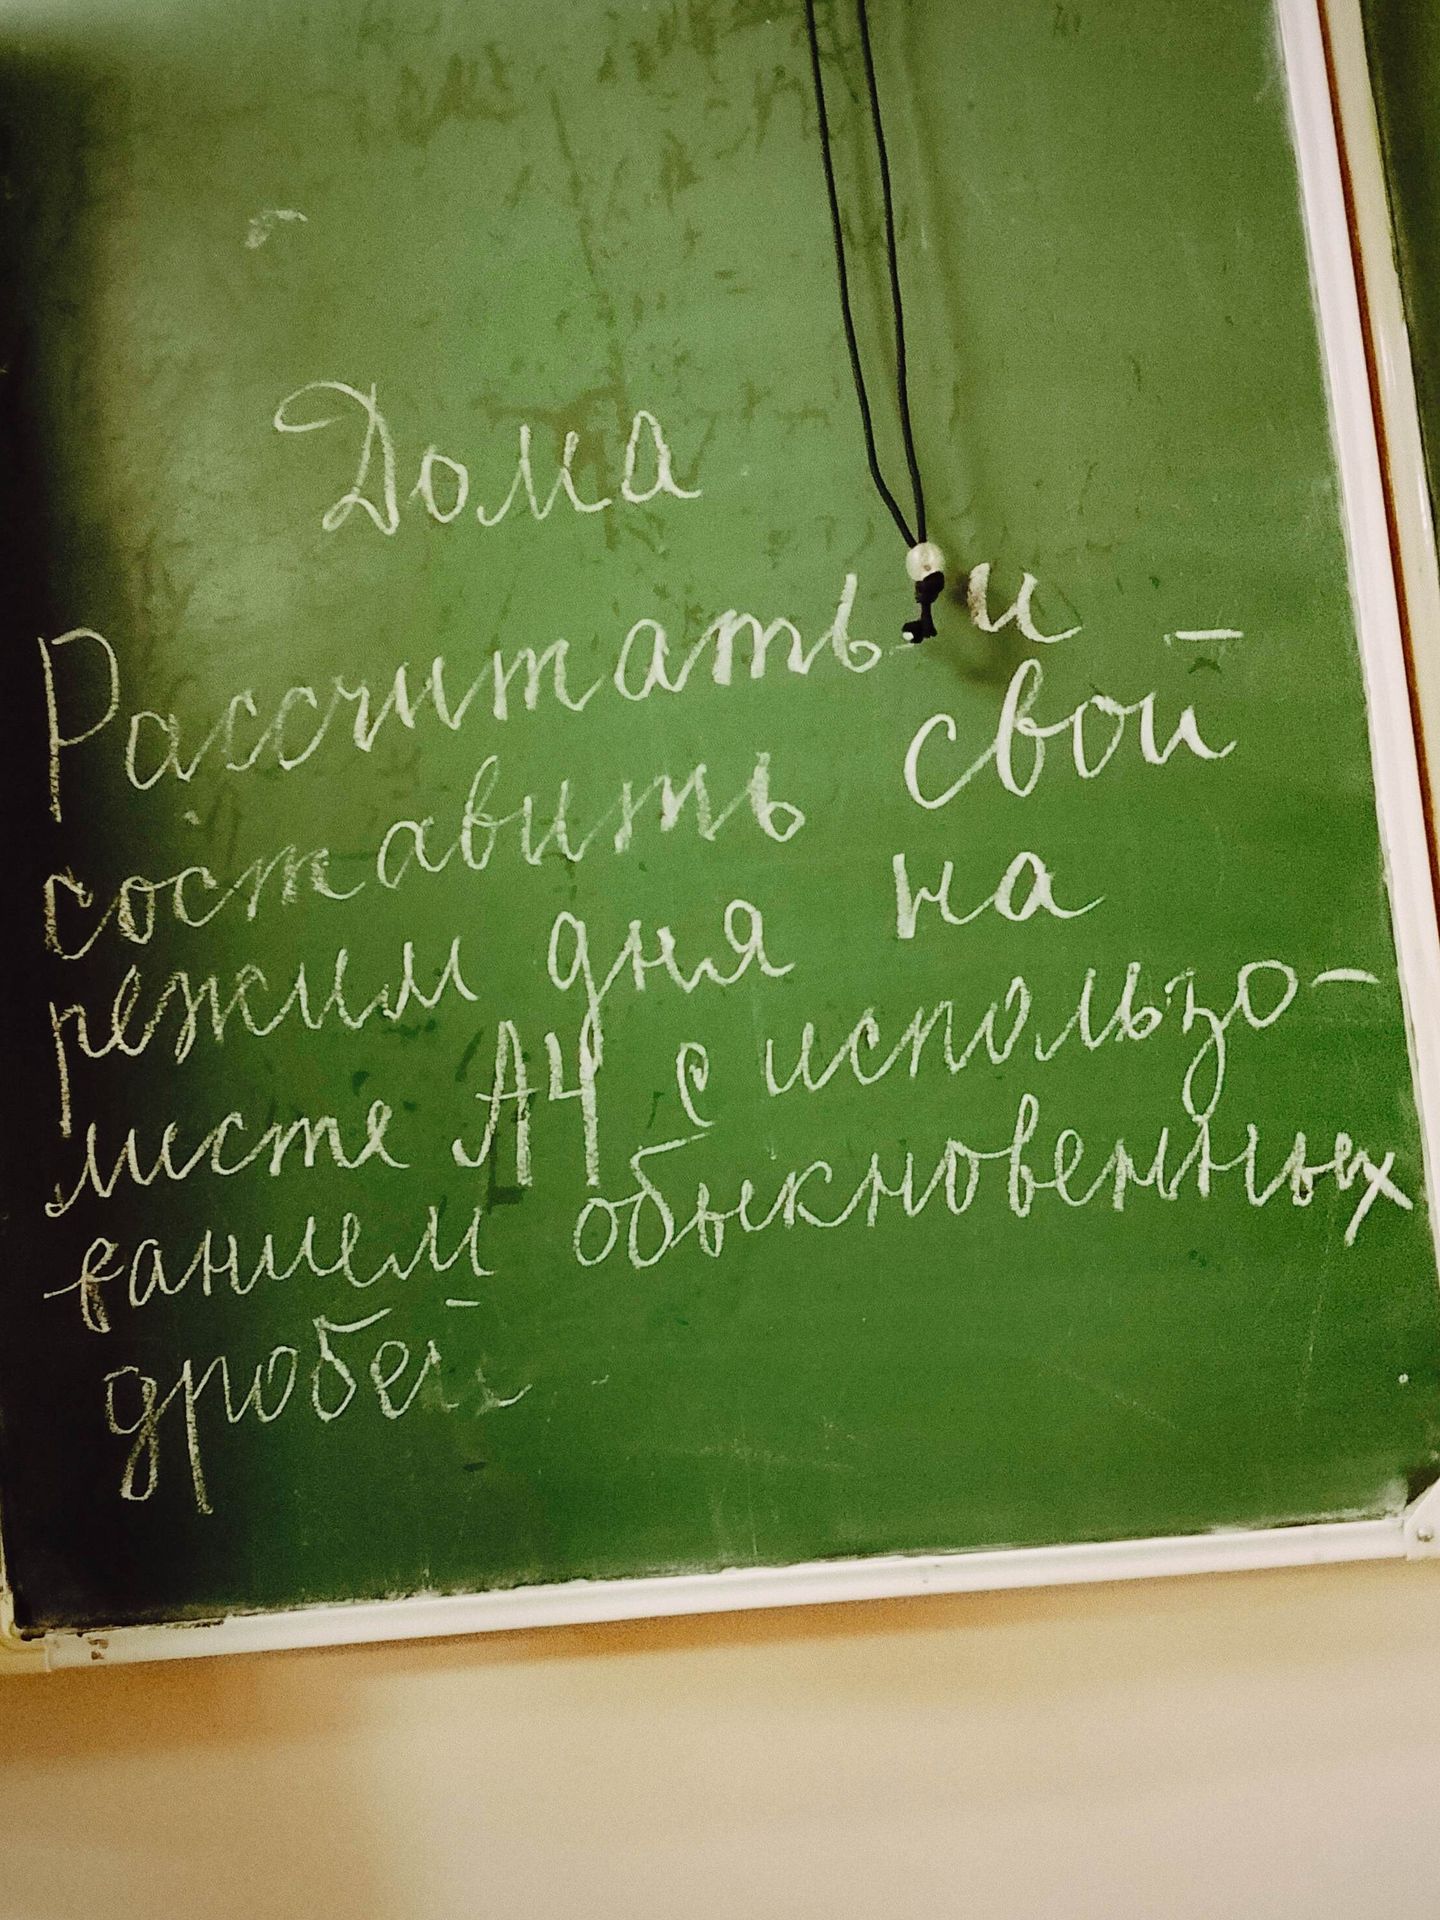 Дома
Рассчитать и
составить свой
режим дня на
листе А4 с использо-
ванием обыкновенных
дробей